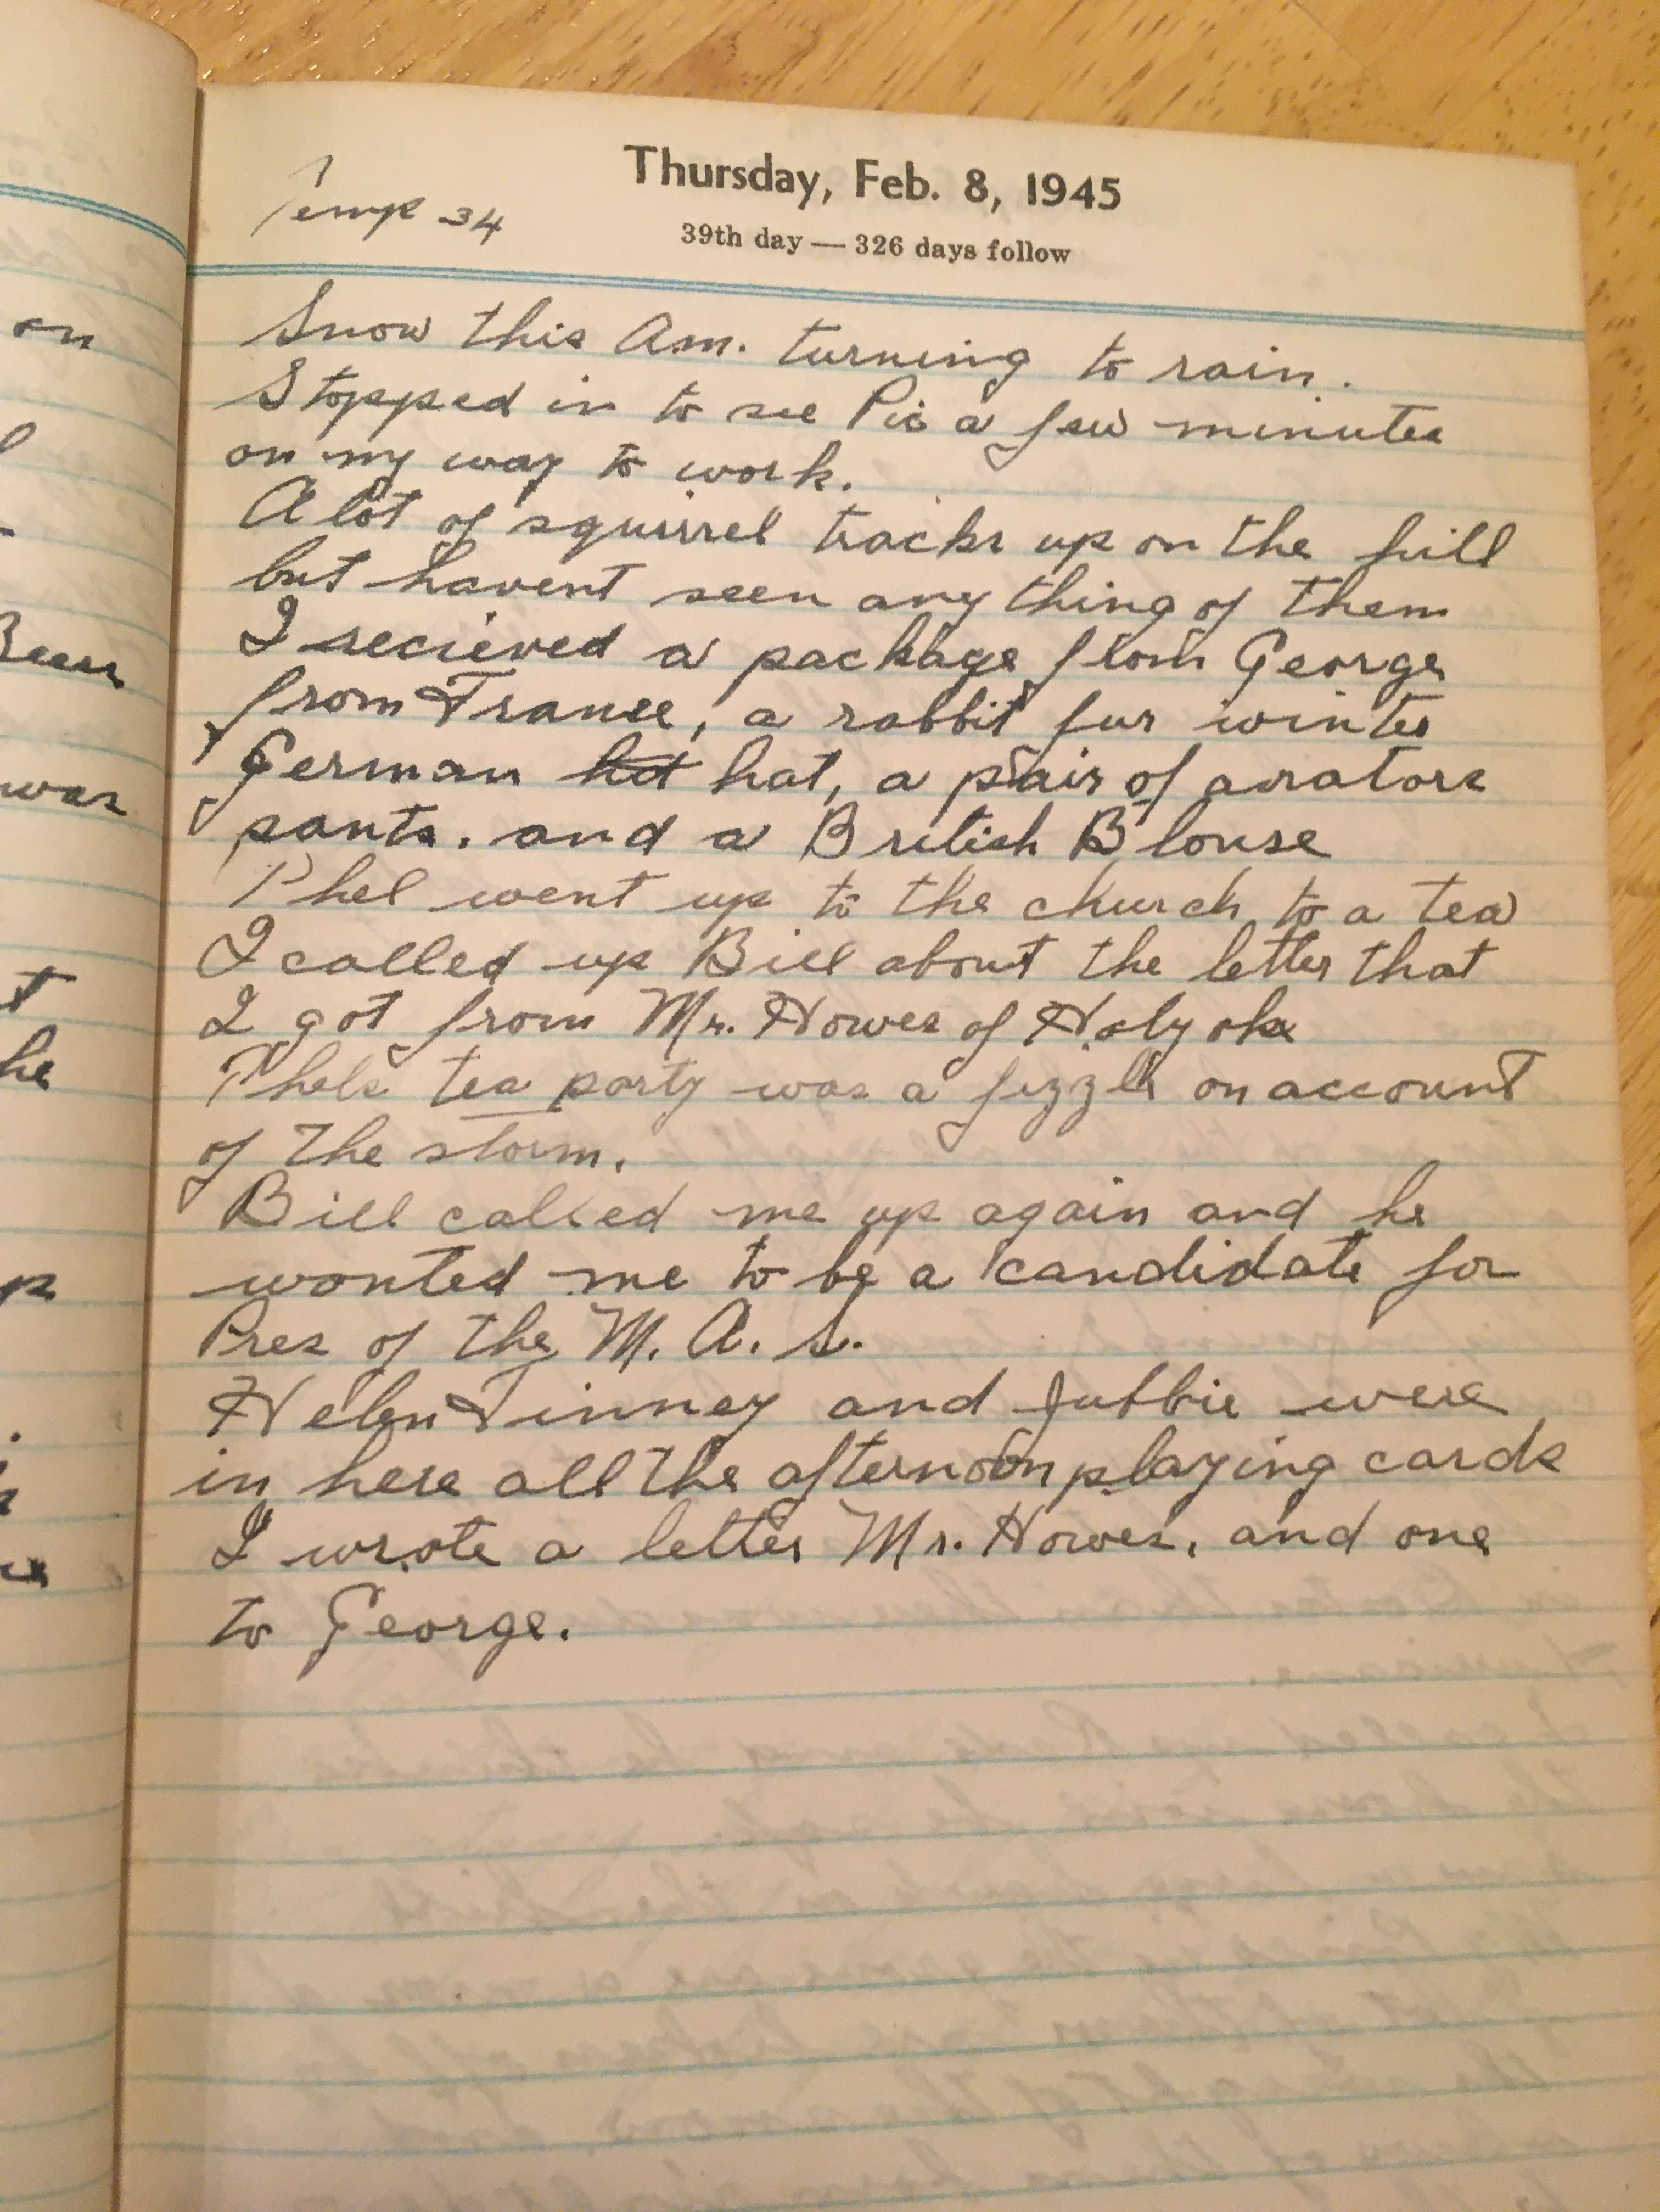 Thursday, Feb. 8, 1945
Temp 34
39th day — 326 days follow
Snow this Am. turning to rain.
Stopped in to see Pic a few minutes
on my way to work.
A lot of squirrel tracks up on the hill
but havent seen any thing of them
I recieved a package from George
from France, a rabbit fur winter
German hat hat, a pair of aviators
pants. and a British Blouse
Phel went up to the church to a tea
I called up Bill about the letter that
I got from Mr. Howes of Holyoke
Phels tea party was a fizzle on account
of the storm.
Bill called me up again and he
wanted me to be a candidate for
Pres of the M. A. S.
Helen Tinney and Jubbie were
in here all the afternoon playing cards
I wrote a letter Mr. Howes, and one
to George.
on
was
t
he